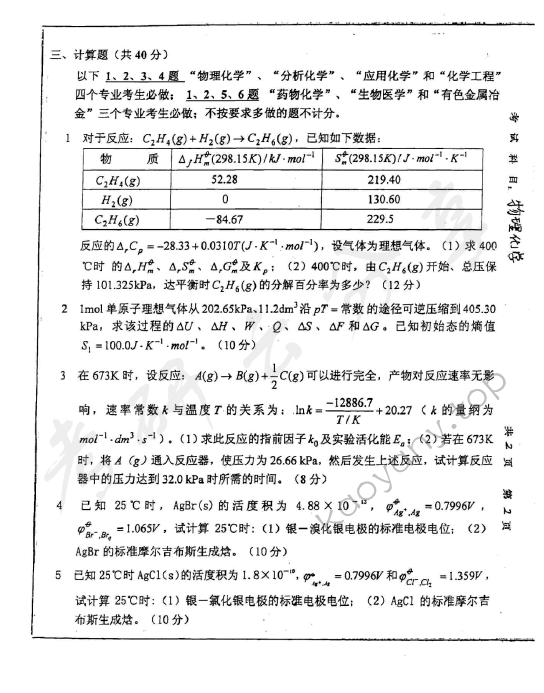 三、计算题（共 40 分）
以下 1、2、3、4 题 “物理化学”、“分析化学”、“应用化学”和“化学工程”
四个专业考生必做；1、2、5、6 题 “药物化学”、“生物医学”和“有色金属冶
金”三个专业考生必做；不按要求多做的题不计分。
1 对于反应：C₂H₄(g) + H₂(g) → C₂H₆(g)，已知如下数据：
物 质 Δ_fH_m^⊖(298.15K)/kJ·mol⁻¹ S_m^⊖(298.15K)/J·mol⁻¹·K⁻¹
C₂H₄(g) 52.28 219.40
H₂(g) 0 130.60
C₂H₆(g) −84.67 229.5
反应的Δ_rC_p = −28.33 + 0.0310T(J·K⁻¹·mol⁻¹)，设气体为理想气体。（1）求 400
℃时 的Δ_rH_m^⊖、Δ_rS_m^⊖、Δ_rG_m^⊖及K_p；（2）400℃时，由C₂H₆(g)开始、总压保
持 101.325kPa，达平衡时C₂H₆(g)的分解百分率为多少？（12 分）
2 1mol 单原子理想气体从 202.65kPa、11.2dm³沿 pT = 常数的途径可逆压缩到 405.30
kPa，求该过程的ΔU、ΔH、W、Q、ΔS、ΔF 和ΔG。已知初始态的熵值
S₁ = 100.0J·K⁻¹·mol⁻¹。（10 分）
3 在 673K 时，设反应：A(g) → B(g) + 1/2 C(g)可以进行完全，产物对反应速率无影
响，速率常数 k 与温度 T 的关系为：lnk = −12886.7/(T/K) + 20.27（k 的量纲为
mol⁻¹·dm³·s⁻¹）。（1）求此反应的指前因子k₀及实验活化能E_a；（2）若在 673K
时，将 A（g）通入反应器，使压力为 26.66 kPa，然后发生上述反应，试计算反应
器中的压力达到 32.0 kPa 时所需的时间。（8 分）
4 已知 25℃时，AgBr(s)的活度积为 4.88×10⁻¹³，φ^⊖_{Ag⁺,Ag} = 0.7996V，
φ^⊖_{Br⁻,Br₂} = 1.065V，试计算 25℃时：（1）银－溴化银电极的标准电极电位；（2）
AgBr 的标准摩尔吉布斯生成焓。（10 分）
5 已知 25℃时 AgCl(s)的活度积为 1.8×10⁻¹⁰，φ^⊖_{Ag⁺,Ag} = 0.7996V 和φ^⊖_{Cl⁻,Cl₂} = 1.359V，
试计算 25℃时：（1）银－氯化银电极的标准电极电位；（2）AgCl 的标准摩尔吉
布斯生成焓。（10 分）
考试科目：物理化学
共 2 页 第 2 页
kaoyany.top